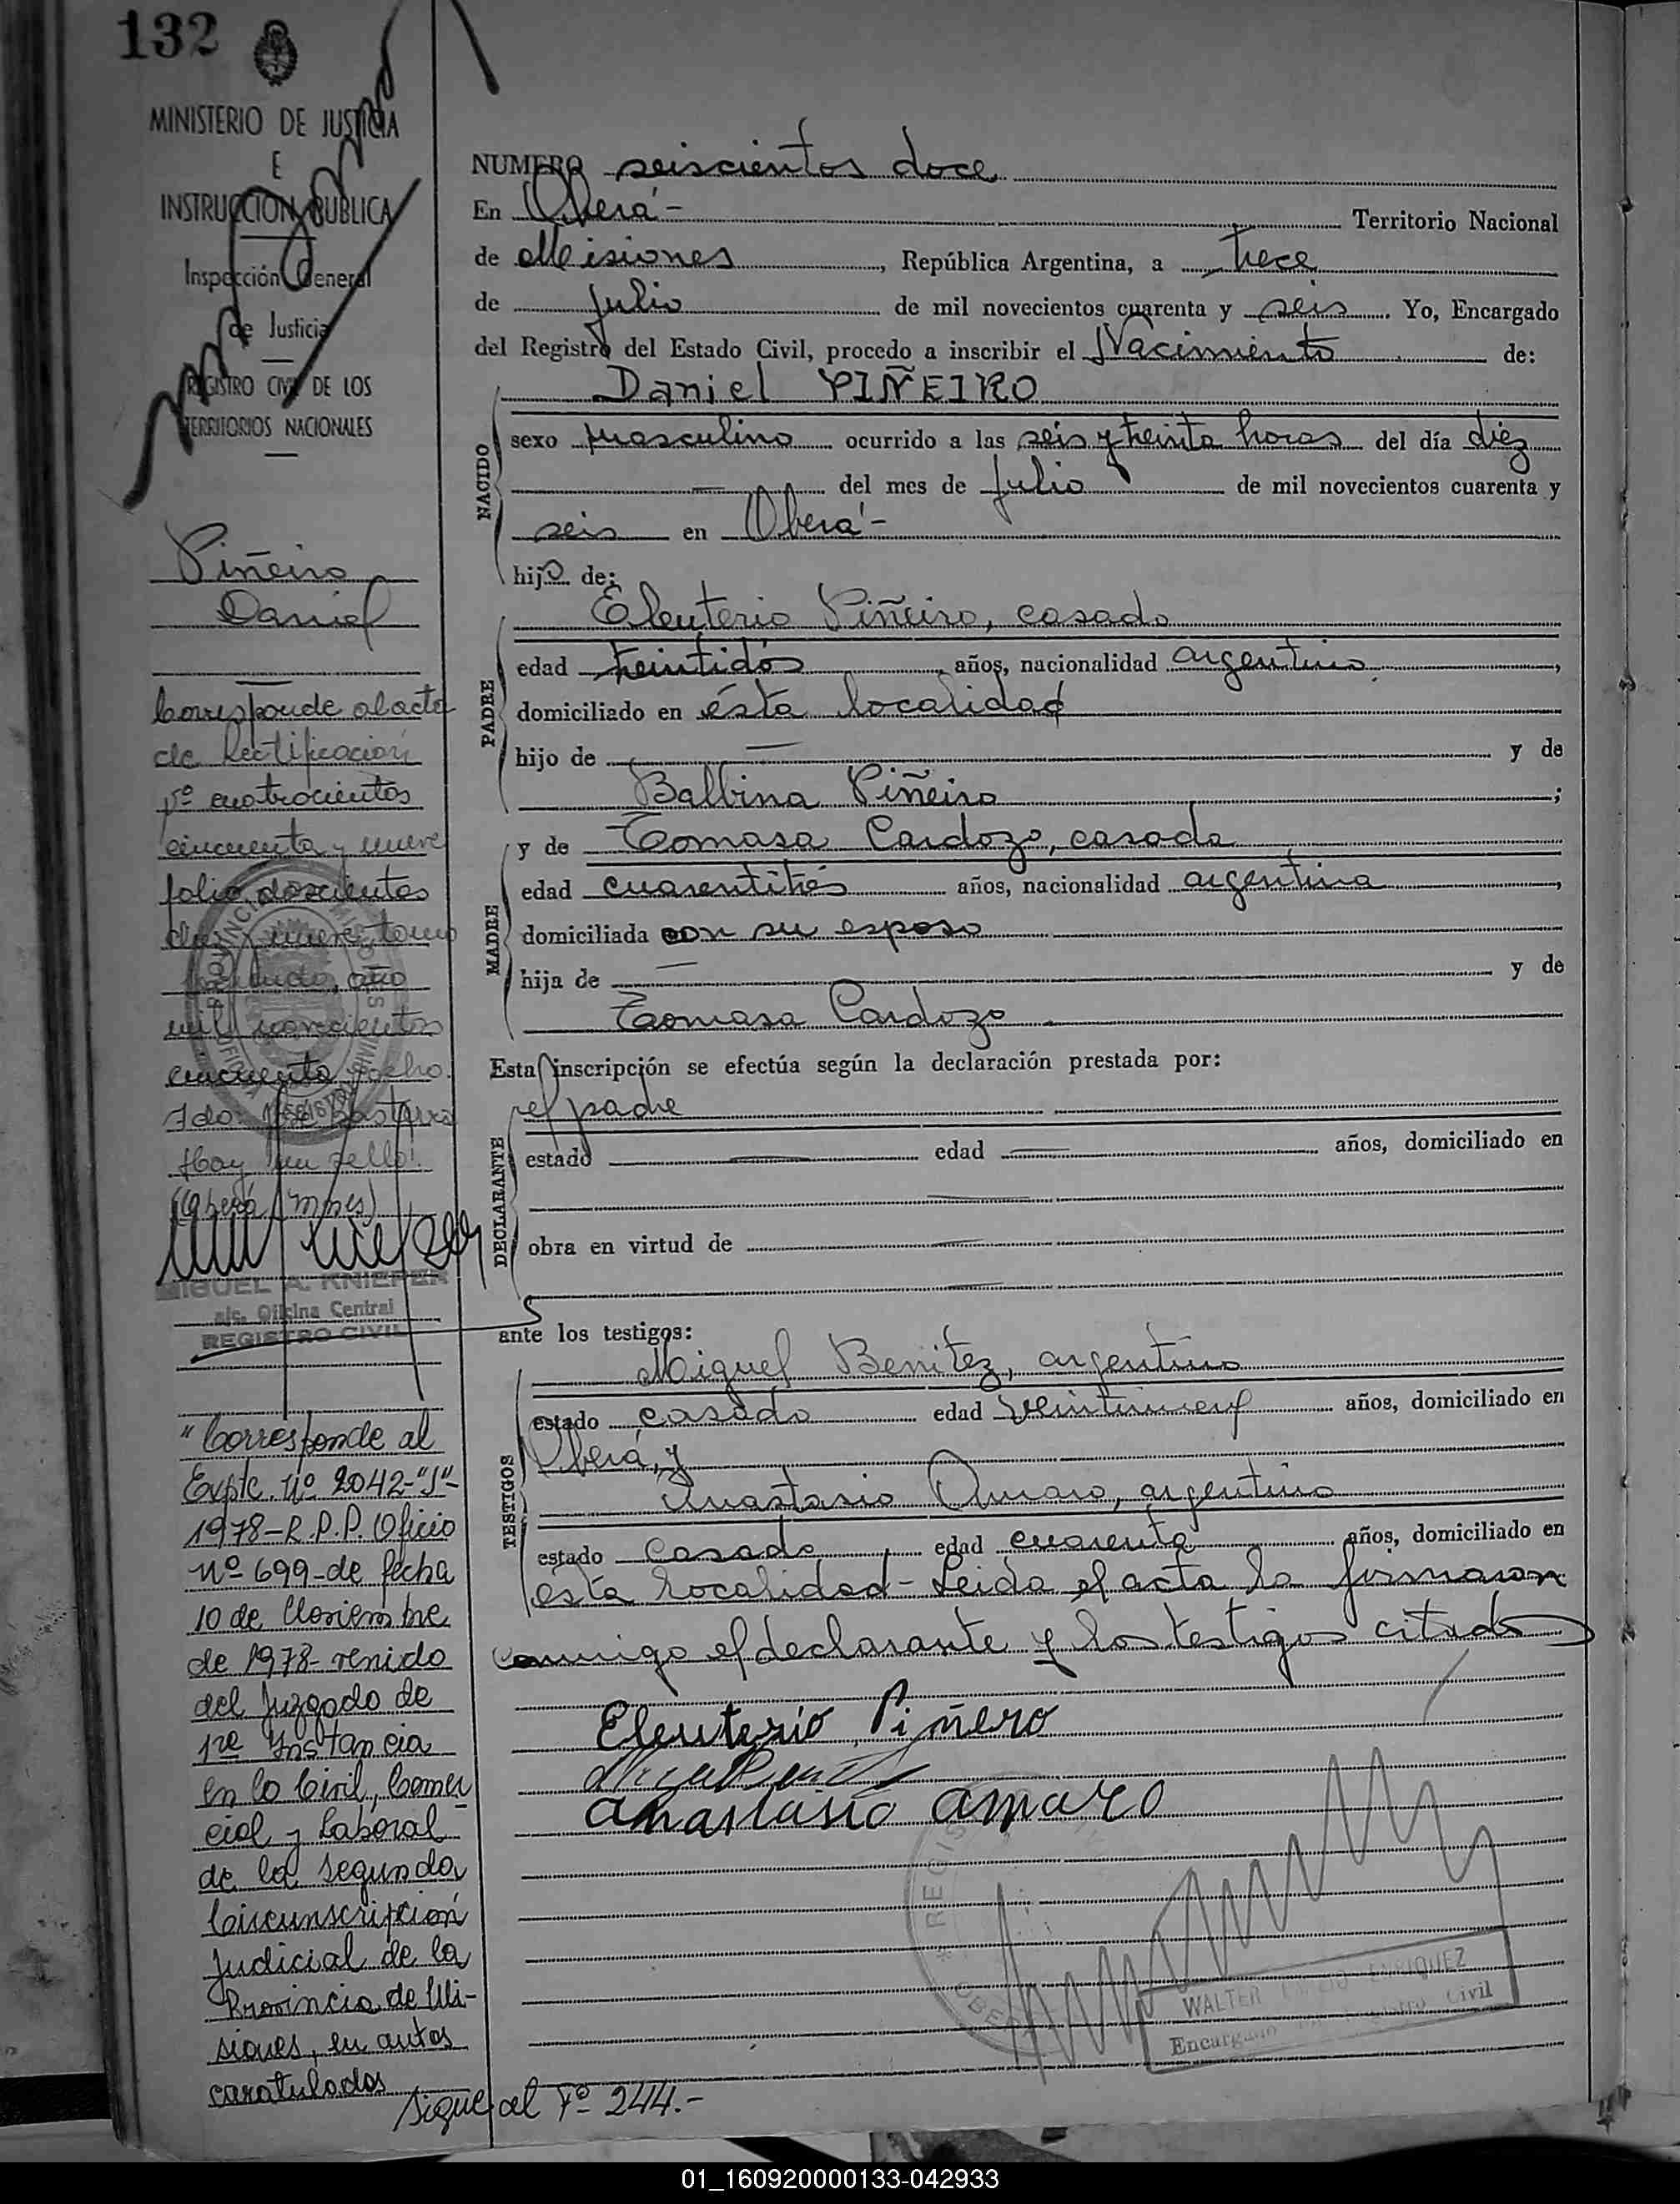 132
MINISTERIO DE JUSTICIA
E
INSTRUCCION PUBLICA
Inspección General
de Justicia
REGISTRO CIVIL DE LOS
TERRITORIOS NACIONALES
Piñeiro
Daniel
Corresponde al acta
de Rectificación
nº cuatrocientos
cincuenta y nueve
folio doscientos
diez y nueve, tomo
segundo, año
mil novecientos
cincuenta y ocho.
Fdo:
Hay un sello!
(Oberá, Mnes)
MIGUEL A. KNIEPER
a/c. Oficina Central
REGISTRO CIVIL
"Corresponde al
Expte. Nº 2042-"J"-
1978-R.P.P. Oficio
Nº 699-de fecha
10 de Noviembre
de 1978- venido
del Juzgado de
1ra Instancia
en lo Civil, Comer
cial y Laboral
de la segunda
Circunscripción
Judicial de la
Provincia de Mi-
siones, en autos
caratulados
Sigue al Fº 244.-
NUMERO seiscientos doce
En Oberá- Territorio Nacional
de Misiones, República Argentina, a trece
de julio de mil novecientos cuarenta y seis. Yo, Encargado
del Registro del Estado Civil, procedo a inscribir el Nacimiento de:
Daniel PIÑEIRO
NACIDO
sexo masculino ocurrido a las seis y treinta horas del día diez
— del mes de Julio de mil novecientos cuarenta y
seis en Oberá-
hijo de:
PADRE
Eleuterio Piñeiro, casado
edad treintidós años, nacionalidad argentino,
domiciliado en ésta localidad
hijo de — y de
Balbina Piñeiro;
MADRE
y de Tomasa Cardozo, casada
edad cuarentitrés años, nacionalidad argentina,
domiciliada con su esposo
hija de — y de
Tomasa Cardozo
Esta inscripción se efectúa según la declaración prestada por:
DECLARANTE
el padre
estado — edad — años, domiciliado en
obra en virtud de —
ante los testigos:
TESTIGOS
Miguel Benitez, argentino
estado casado edad veintinueve años, domiciliado en
Oberá, y
Anastasio Amaro, argentino
estado casado edad cuarenta años, domiciliado en
ésta localidad- Leida el acta la firmaron
conmigo el declarante y los testigos citados
Eleuterio Piñero
Anastasio Amaro
WALTER ENRIQUEZ
Encargado Registro Civil
01_160920000133-042933